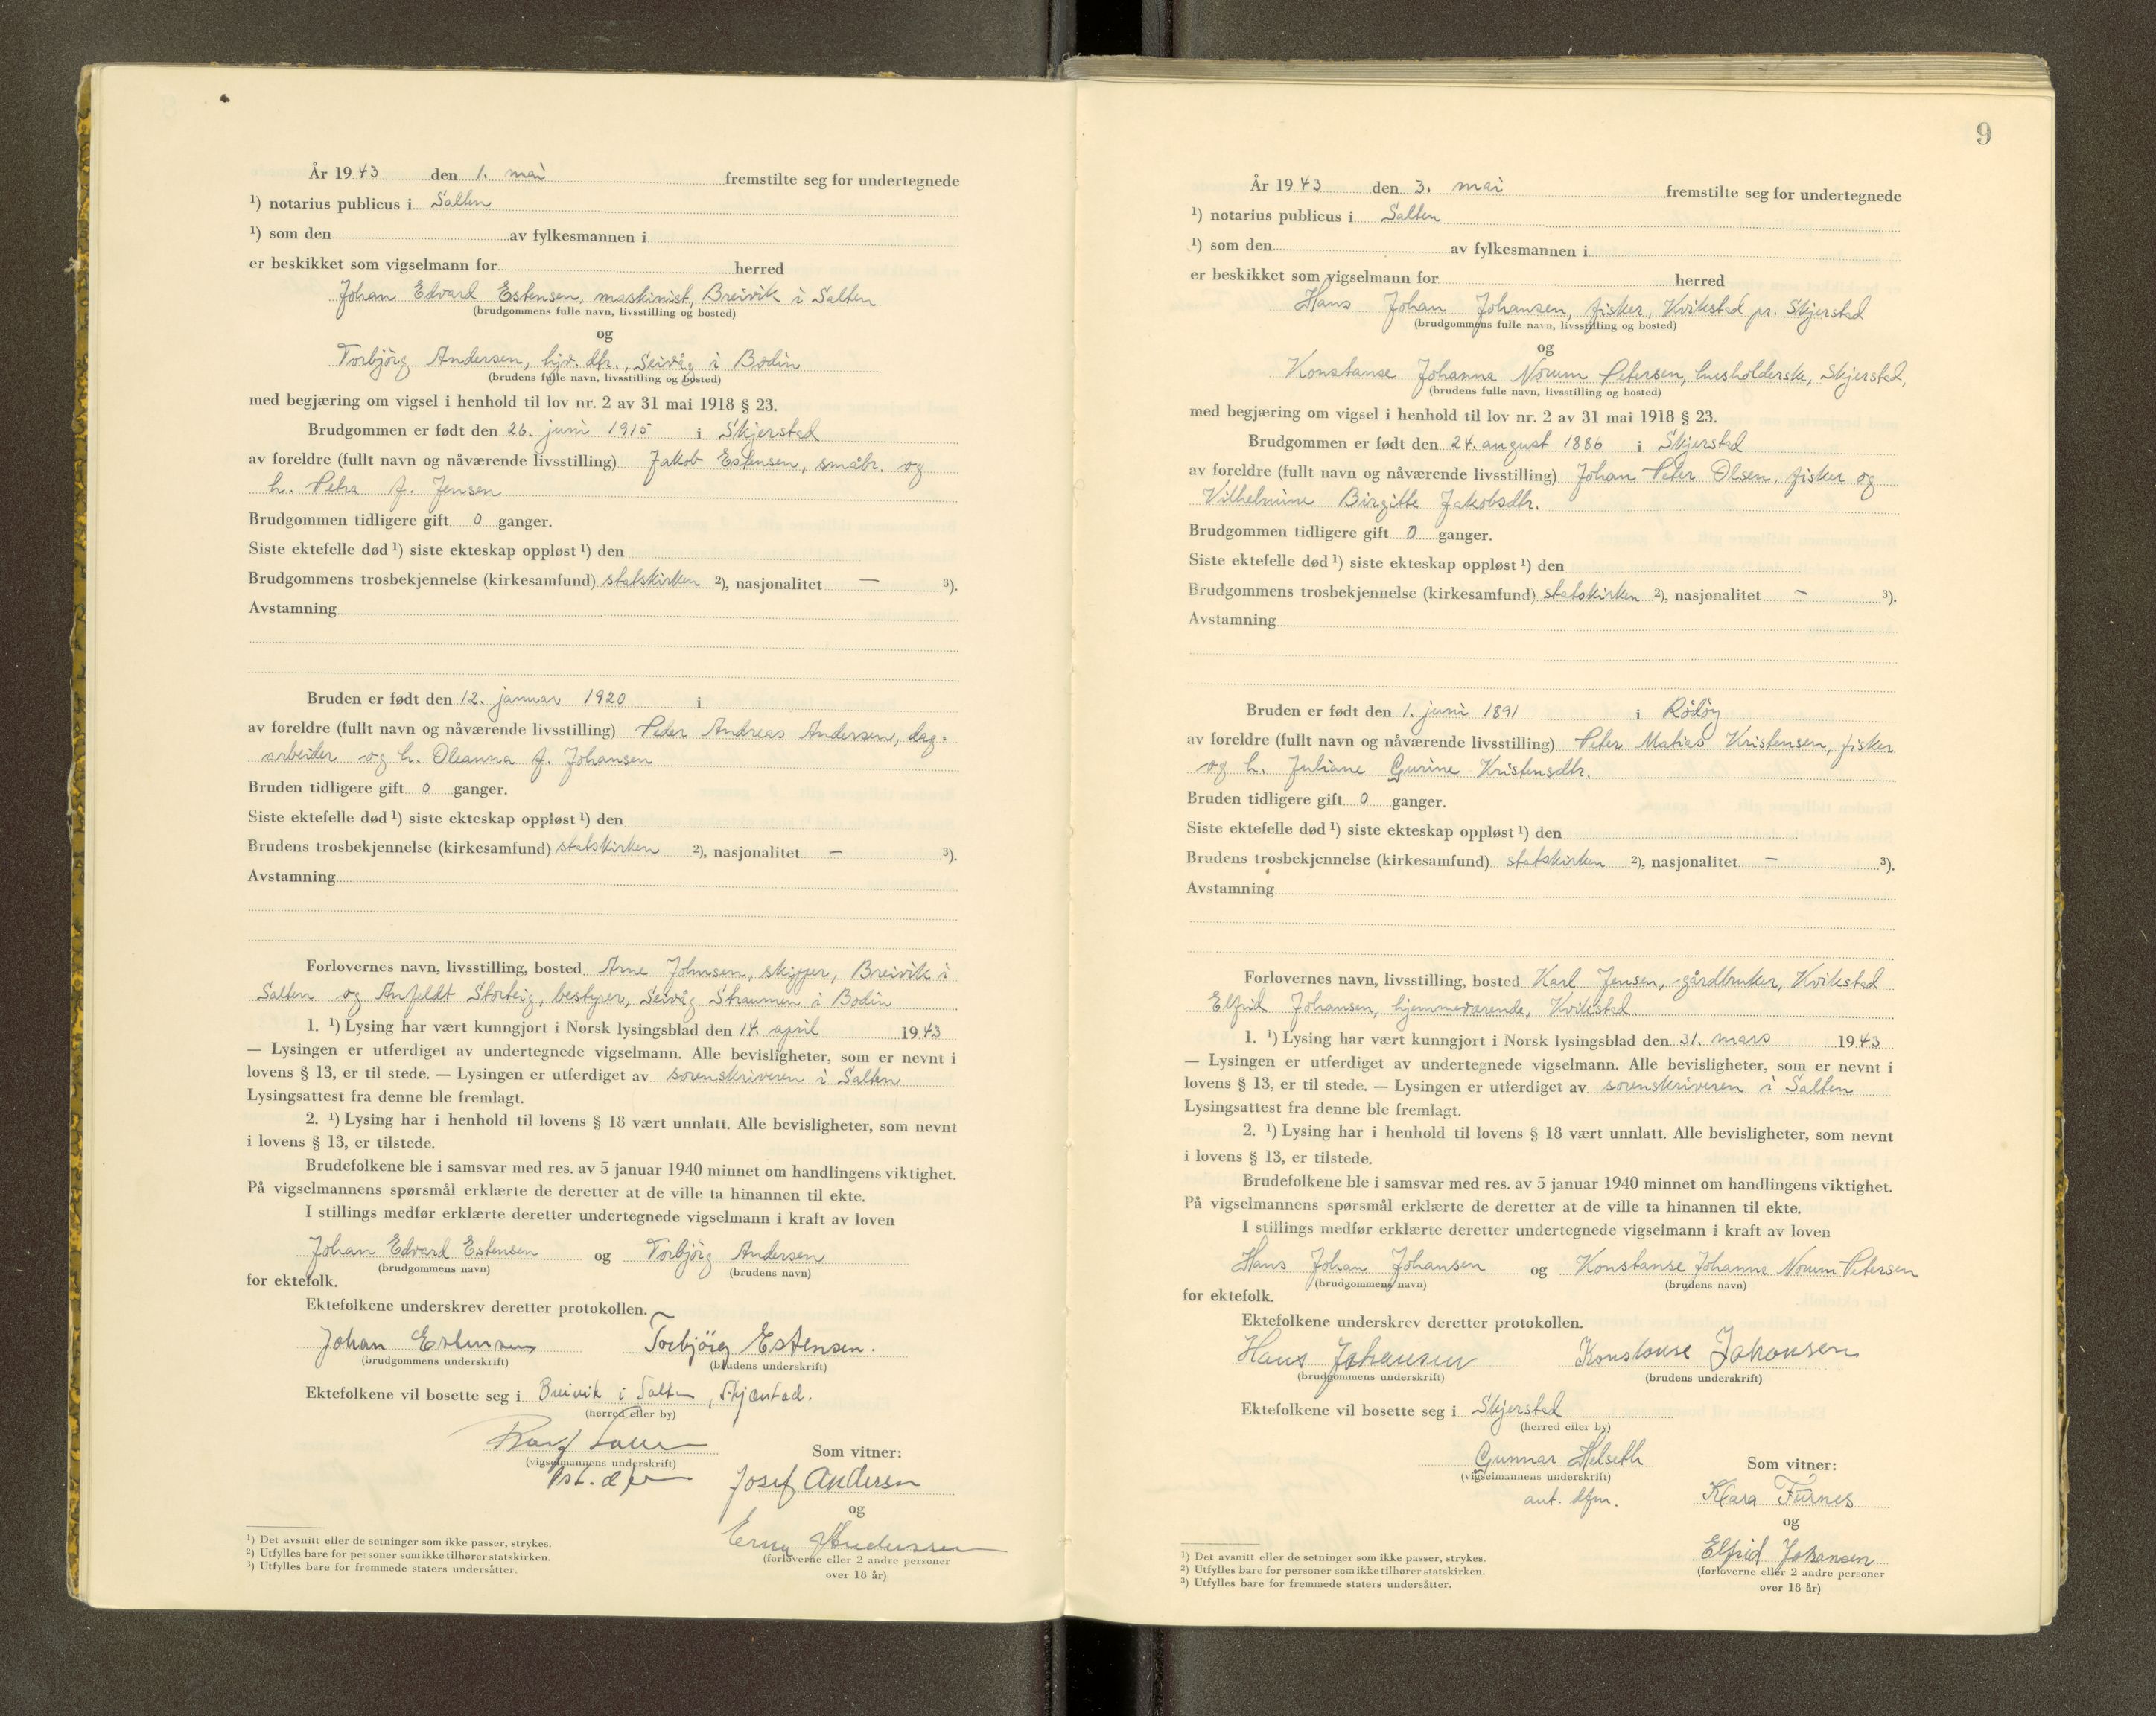 År 1943 den 1. mai fremstilte seg for undertegnede
¹) notarius publicus i Salten
¹) som den av fylkesmannen i
er beskikket som vigselmann for herred
Johan Edvard Estensen, maskinist, Breivik i Salten
(brudgommens fulle navn, livsstilling og bosted)
og
Torbjörg Andersen, hjv. dtr., Seivåg i Bodin
(brudens fulle navn, livsstilling og bosted)
med begjæring om vigsel i henhold til lov nr. 2 av 31 mai 1918 § 23.
Brudgommen er født den 26. juni 1915 i Skjerstad
av foreldre (fullt navn og nåværende livsstilling) Jakob Estensen, småbr. og
h. Petra f. Jensen
Brudgommen tidligere gift 0 ganger.
Siste ektefelle død ¹) siste ekteskap oppløst ¹) den
Brudgommens trosbekjennelse (kirkesamfund) statskirken ²), nasjonalitet — ³).
Avstamning
Bruden er født den 12. januar 1920 i
av foreldre (fullt navn og nåværende livsstilling) Peder Andreas Andersen, dag-
arbeider og h. Oleanna f. Johansen
Bruden tidligere gift 0 ganger.
Siste ektefelle død ¹) siste ekteskap oppløst ¹) den
Brudens trosbekjennelse (kirkesamfund) statskirken ²), nasjonalitet — ³).
Avstamning
Forlovernes navn, livsstilling, bosted Arne Johnsen, skipper, Breivik i
Salten og Anfeldt Storteig, bestyrer, Seivåg Straumen i Bodin
1. ¹) Lysing har vært kunngjort i Norsk lysingsblad den 14. april 1943
— Lysingen er utferdiget av undertegnede vigselmann. Alle bevisligheter, som er nevnt i
lovens § 13, er til stede. — Lysingen er utferdiget av sorenskriveren i Salten
Lysingsattest fra denne ble fremlagt.
2. ¹) Lysing har i henhold til lovens § 18 vært unnlatt. Alle bevisligheter, som nevnt
i lovens § 13, er tilstede.
Brudefolkene ble i samsvar med res. av 5 januar 1940 minnet om handlingens viktighet.
På vigselmannens spørsmål erklærte de deretter at de ville ta hinannen til ekte.
I stillings medfør erklærte deretter undertegnede vigselmann i kraft av loven
Johan Edvard Estensen og Torbjörg Andersen
(brudgommens navn) (brudens navn)
for ektefolk.
Ektefolkene underskrev deretter protokollen.
Johan Estensen Torbjörg Estensen.
(brudgommens underskrift) (brudens underskrift)
Ektefolkene vil bosette seg i Breivik i Salten, Skjærstad.
(herred eller by)
Som vitner:
(vigselmannens underskrift)
Josef Andersen
og
Erna Andersen
(forloverne eller 2 andre personer
over 18 år)
¹) Det avsnitt eller de setninger som ikke passer, strykes.
²) Utfylles bare for personer som ikke tilhører statskirken.
³) Utfylles bare for fremmede staters undersåtter.
9
År 1943 den 3. mai fremstilte seg for undertegnede
¹) notarius publicus i Salten
¹) som den av fylkesmannen i
er beskikket som vigselmann for herred
Hans Johan Johansen, fisker, Kvikstad pr. Skjerstad
(brudgommens fulle navn, livsstilling og bosted)
og
Konstanse Johanna Norum Petersen, husholderske, Skjerstad,
(brudens fulle navn, livsstilling og bosted)
med begjæring om vigsel i henhold til lov nr. 2 av 31 mai 1918 § 23.
Brudgommen er født den 24. august 1886 i Skjerstad
av foreldre (fullt navn og nåværende livsstilling) Johan Peter Olsen, fisker og
Vilhelmine Birgitte Jakobsdtr.
Brudgommen tidligere gift 0 ganger.
Siste ektefelle død ¹) siste ekteskap oppløst ¹) den
Brudgommens trosbekjennelse (kirkesamfund) statskirken ²), nasjonalitet — ³).
Avstamning
Bruden er født den 1. juni 1891 i Rödöy
av foreldre (fullt navn og nåværende livsstilling) Peter Matias Kristensen, fisker
og h. Juliane Gurine Kristensdtr.
Bruden tidligere gift 0 ganger.
Siste ektefelle død ¹) siste ekteskap oppløst ¹) den
Brudens trosbekjennelse (kirkesamfund) statskirken ²), nasjonalitet — ³).
Avstamning
Forlovernes navn, livsstilling, bosted Karl Jensen, gårdbruker, Kvikstad
Elfrid Johansen, hjemmeværende, Kvikstad.
1. ¹) Lysing har vært kunngjort i Norsk lysingsblad den 31. mars 1943
— Lysingen er utferdiget av undertegnede vigselmann. Alle bevisligheter, som er nevnt i
lovens § 13, er til stede. — Lysingen er utferdiget av sorenskriveren i Salten
Lysingsattest fra denne ble fremlagt.
2. ¹) Lysing har i henhold til lovens § 18 vært unnlatt. Alle bevisligheter, som nevnt
i lovens § 13, er tilstede.
Brudefolkene ble i samsvar med res. av 5 januar 1940 minnet om handlingens viktighet.
På vigselmannens spørsmål erklærte de deretter at de ville ta hinannen til ekte.
I stillings medfør erklærte deretter undertegnede vigselmann i kraft av loven
Hans Johan Johansen og Konstanse Johanna Norum Petersen
(brudgommens navn) (brudens navn)
for ektefolk.
Ektefolkene underskrev deretter protokollen.
Hans Johansen Konstanse Johansen
(brudgommens underskrift) (brudens underskrift)
Ektefolkene vil bosette seg i Skjerstad
(herred eller by)
Gunnar Helseth Som vitner:
(vigselmannens underskrift)
aut. dfm. Klara Furnes
og
Elfrid Johansen
(forloverne eller 2 andre personer
over 18 år)
¹) Det avsnitt eller de setninger som ikke passer, strykes.
²) Utfylles bare for personer som ikke tilhører statskirken.
³) Utfylles bare for fremmede staters undersåtter.